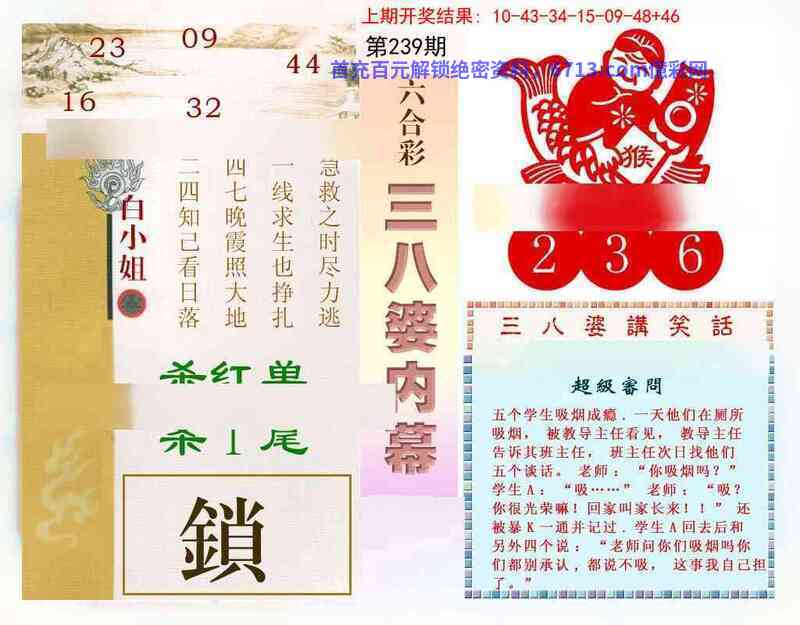 上期开奖结果: 10-43-34-15-09-48+46
第239期
首充百元解锁绝密资料，6713.com億彩网
23
09
44
16
32
六合彩
三八婆内幕
白小姐
急救之时尽力逃
一线求生也挣扎
四七晚霞照大地
二四知己看日落
杀红单
杀1尾
鎖
猴
2 3 6
三八婆講笑話
超級審問
五个学生吸烟成瘾．一天他们在厕所
吸烟，被教导主任看见，教导主任
告诉其班主任，班主任次日找他们
五个谈话。老师：“你吸烟吗？”
学生A：“吸……”老师：“吸？
你很光荣嘛！回家叫家长来！！”还
被暴K一通并记过．学生A回去后和
另外四个说：“老师问你们吸烟吗你
们都别承认，都说不吸，这事我自己担
了。”